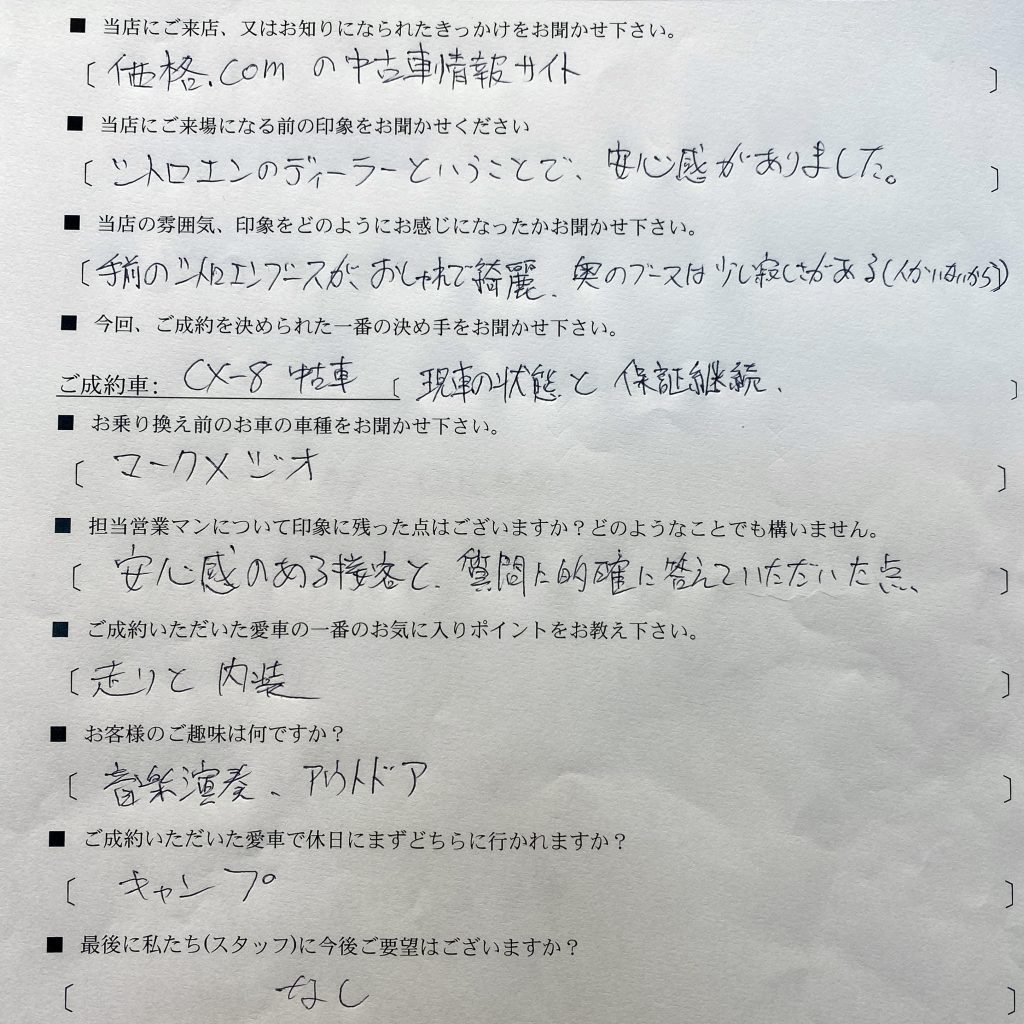 ■ 当店にご来店、又はお知りになられたきっかけをお聞かせ下さい。
〔 価格.comの中古車情報サイト 〕
■ 当店にご来場になる前の印象をお聞かせください
〔 シトロエンのディーラーということで、安心感がありました。 〕
■ 当店の雰囲気、印象をどのようにお感じになったかお聞かせ下さい。
〔 手前のシトロエンブースが、おしゃれで綺麗、奥のブースは少し寂しさがある(人がいないから) 〕
■ 今回、ご成約を決められた一番の決め手をお聞かせ下さい。
ご成約車: CX-8 中古車 〔 現車の状態と保証継続、 〕
■ お乗り換え前のお車の車種をお聞かせ下さい。
〔 マークXジオ 〕
■ 担当営業マンについて印象に残った点はございますか？どのようなことでも構いません。
〔 安心感のある接客と、質問に的確に答えていただいた点、 〕
■ ご成約いただいた愛車の一番のお気に入りポイントをお教え下さい。
〔 走りと内装 〕
■ お客様のご趣味は何ですか？
〔 音楽演奏、アウトドア 〕
■ ご成約いただいた愛車で休日にまずどちらに行かれますか？
〔 キャンプ 〕
■ 最後に私たち(スタッフ)に今後ご要望はございますか？
〔 なし 〕